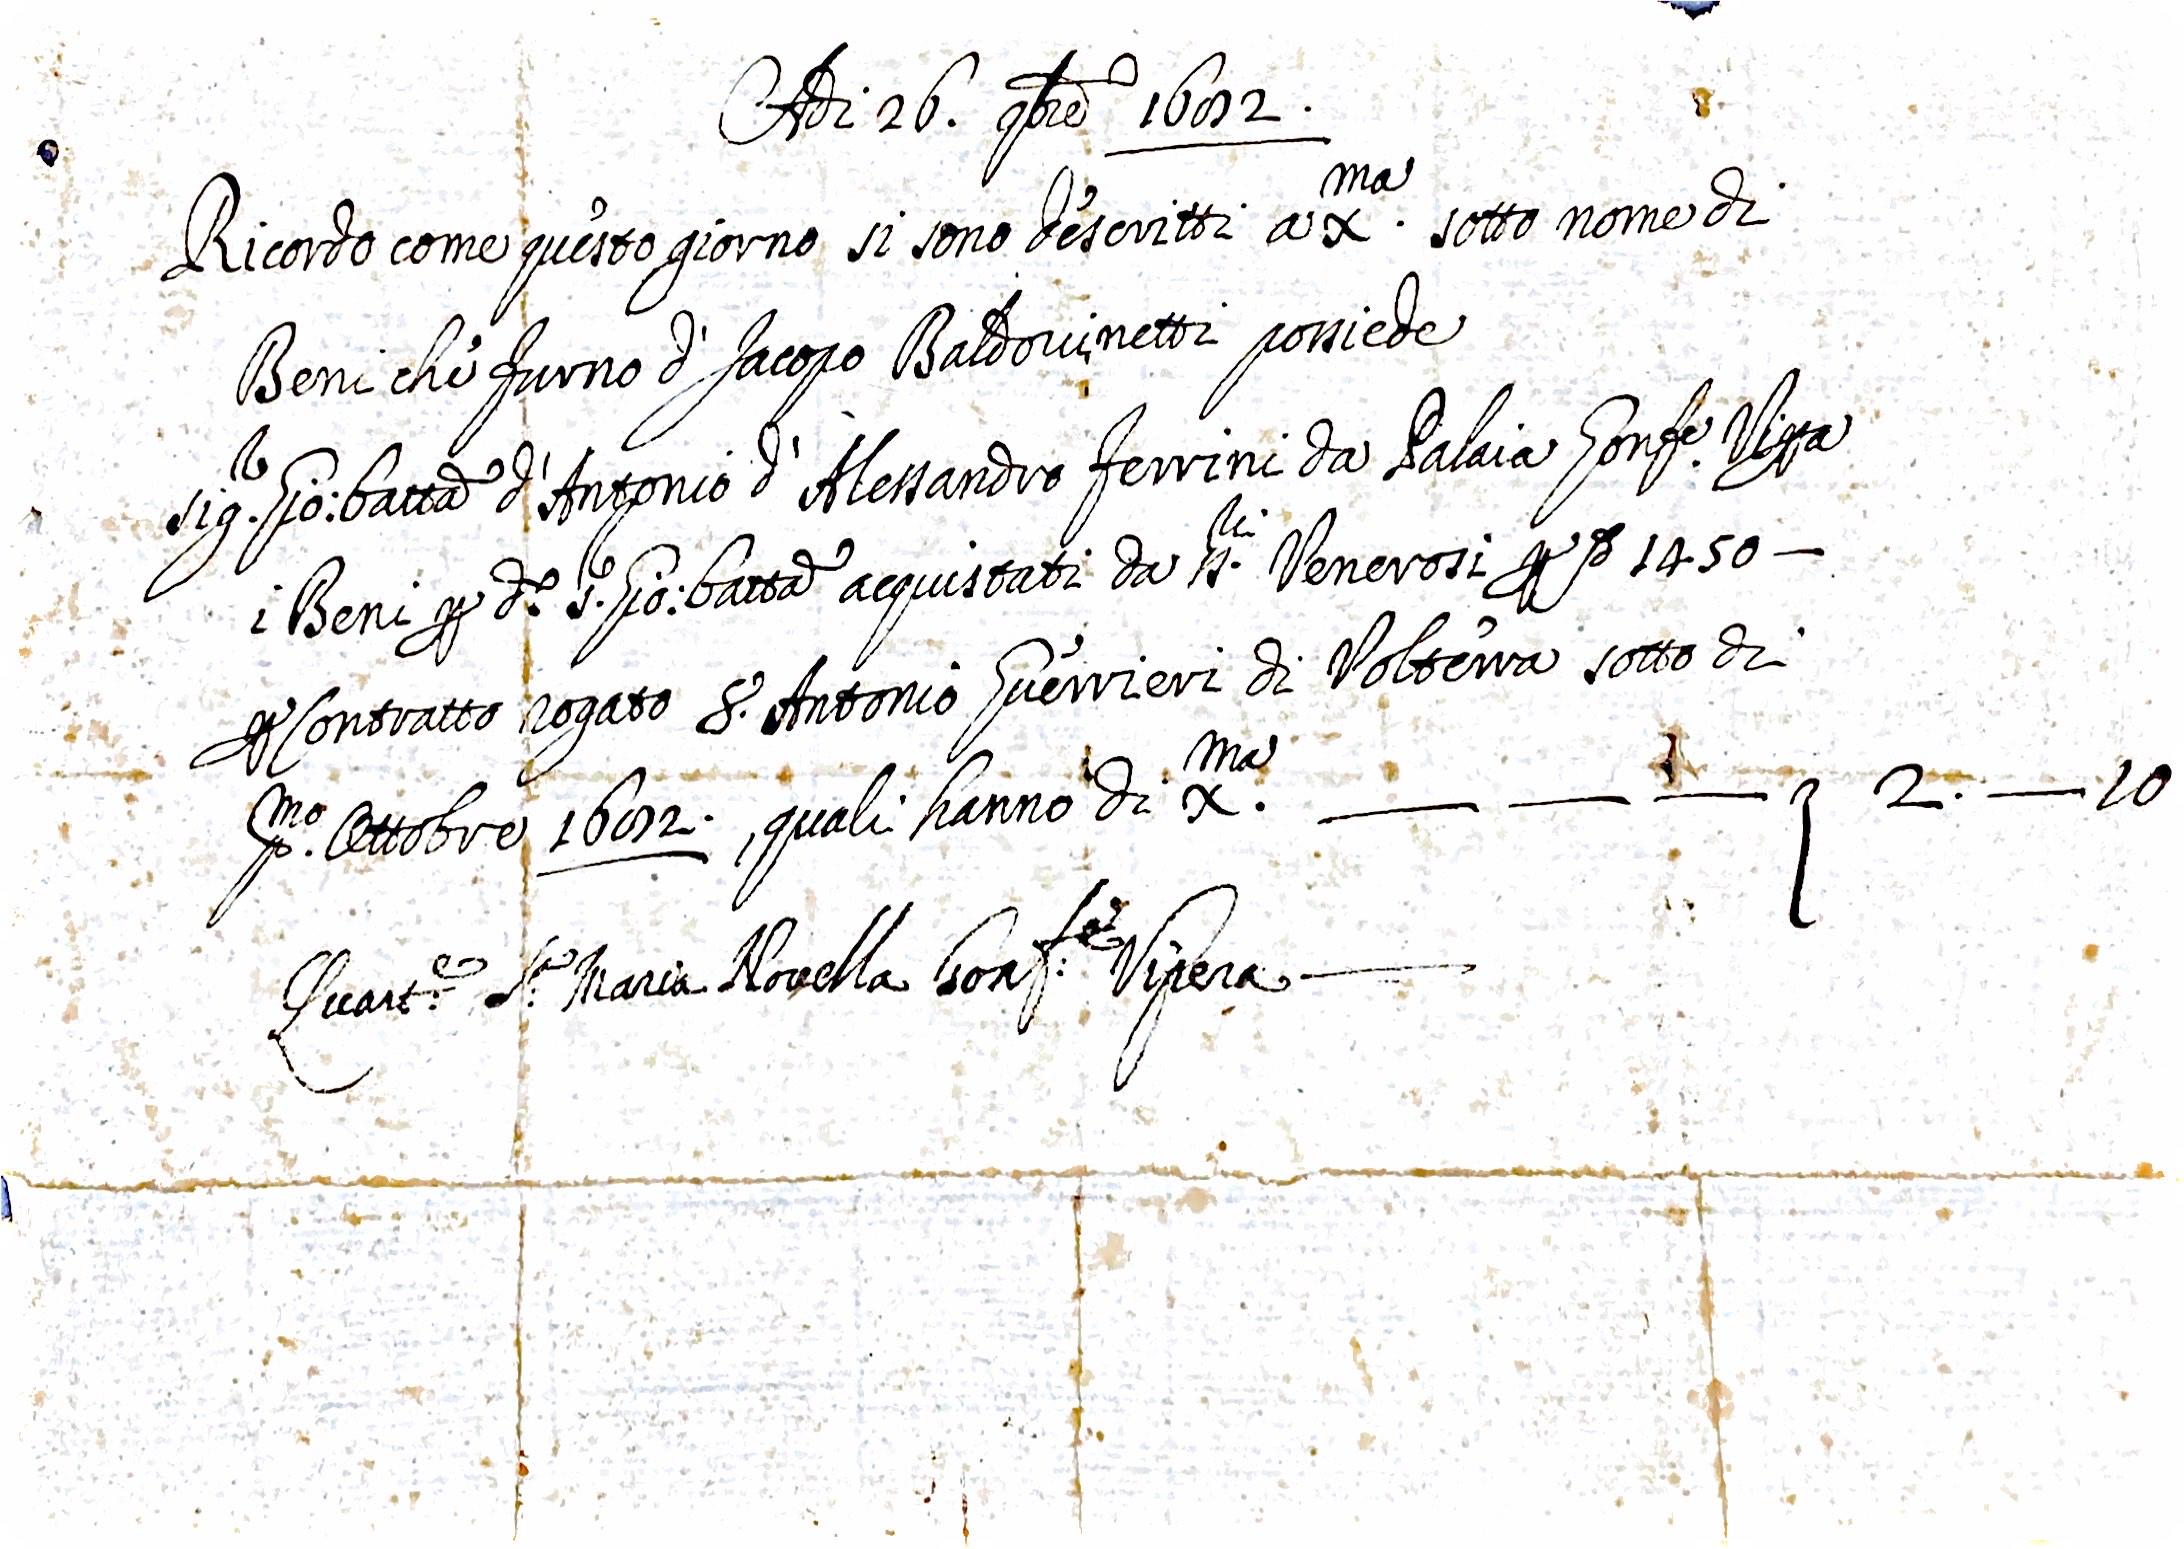 Adi 26. 9bre 1692.
Ricordo come questo giorno si sono descritti a Xma. sotto nome di
Beni che furno d' Jacopo Baldovinetti possiede
Sigre. Gio: batta d' Antonio d' Alessandro Ferrini da Palaia Gonfe. Vipra
i Beni p do. Sre. Gio: batta acquistati da Sri. Venerosi p 1450 —
p Contratto rogato S. Antonio Guerrieri di Volterra sotto di
pmo. Ottobre 1692. , quali hanno di Xma. — — — } 2. — 10
Quarte. Sa. Maria Novella Gonfre: Vipera —